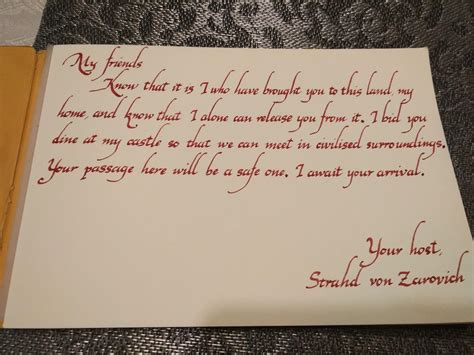 My friends
Know that it is I who have brought you to this land, my
home, and know that I alone can release you from it. I bid you
dine at my castle so that we can meet in civilised surroundings.
Your passage here will be a safe one. I await your arrival.
Your host,
Strahd von Zarovich